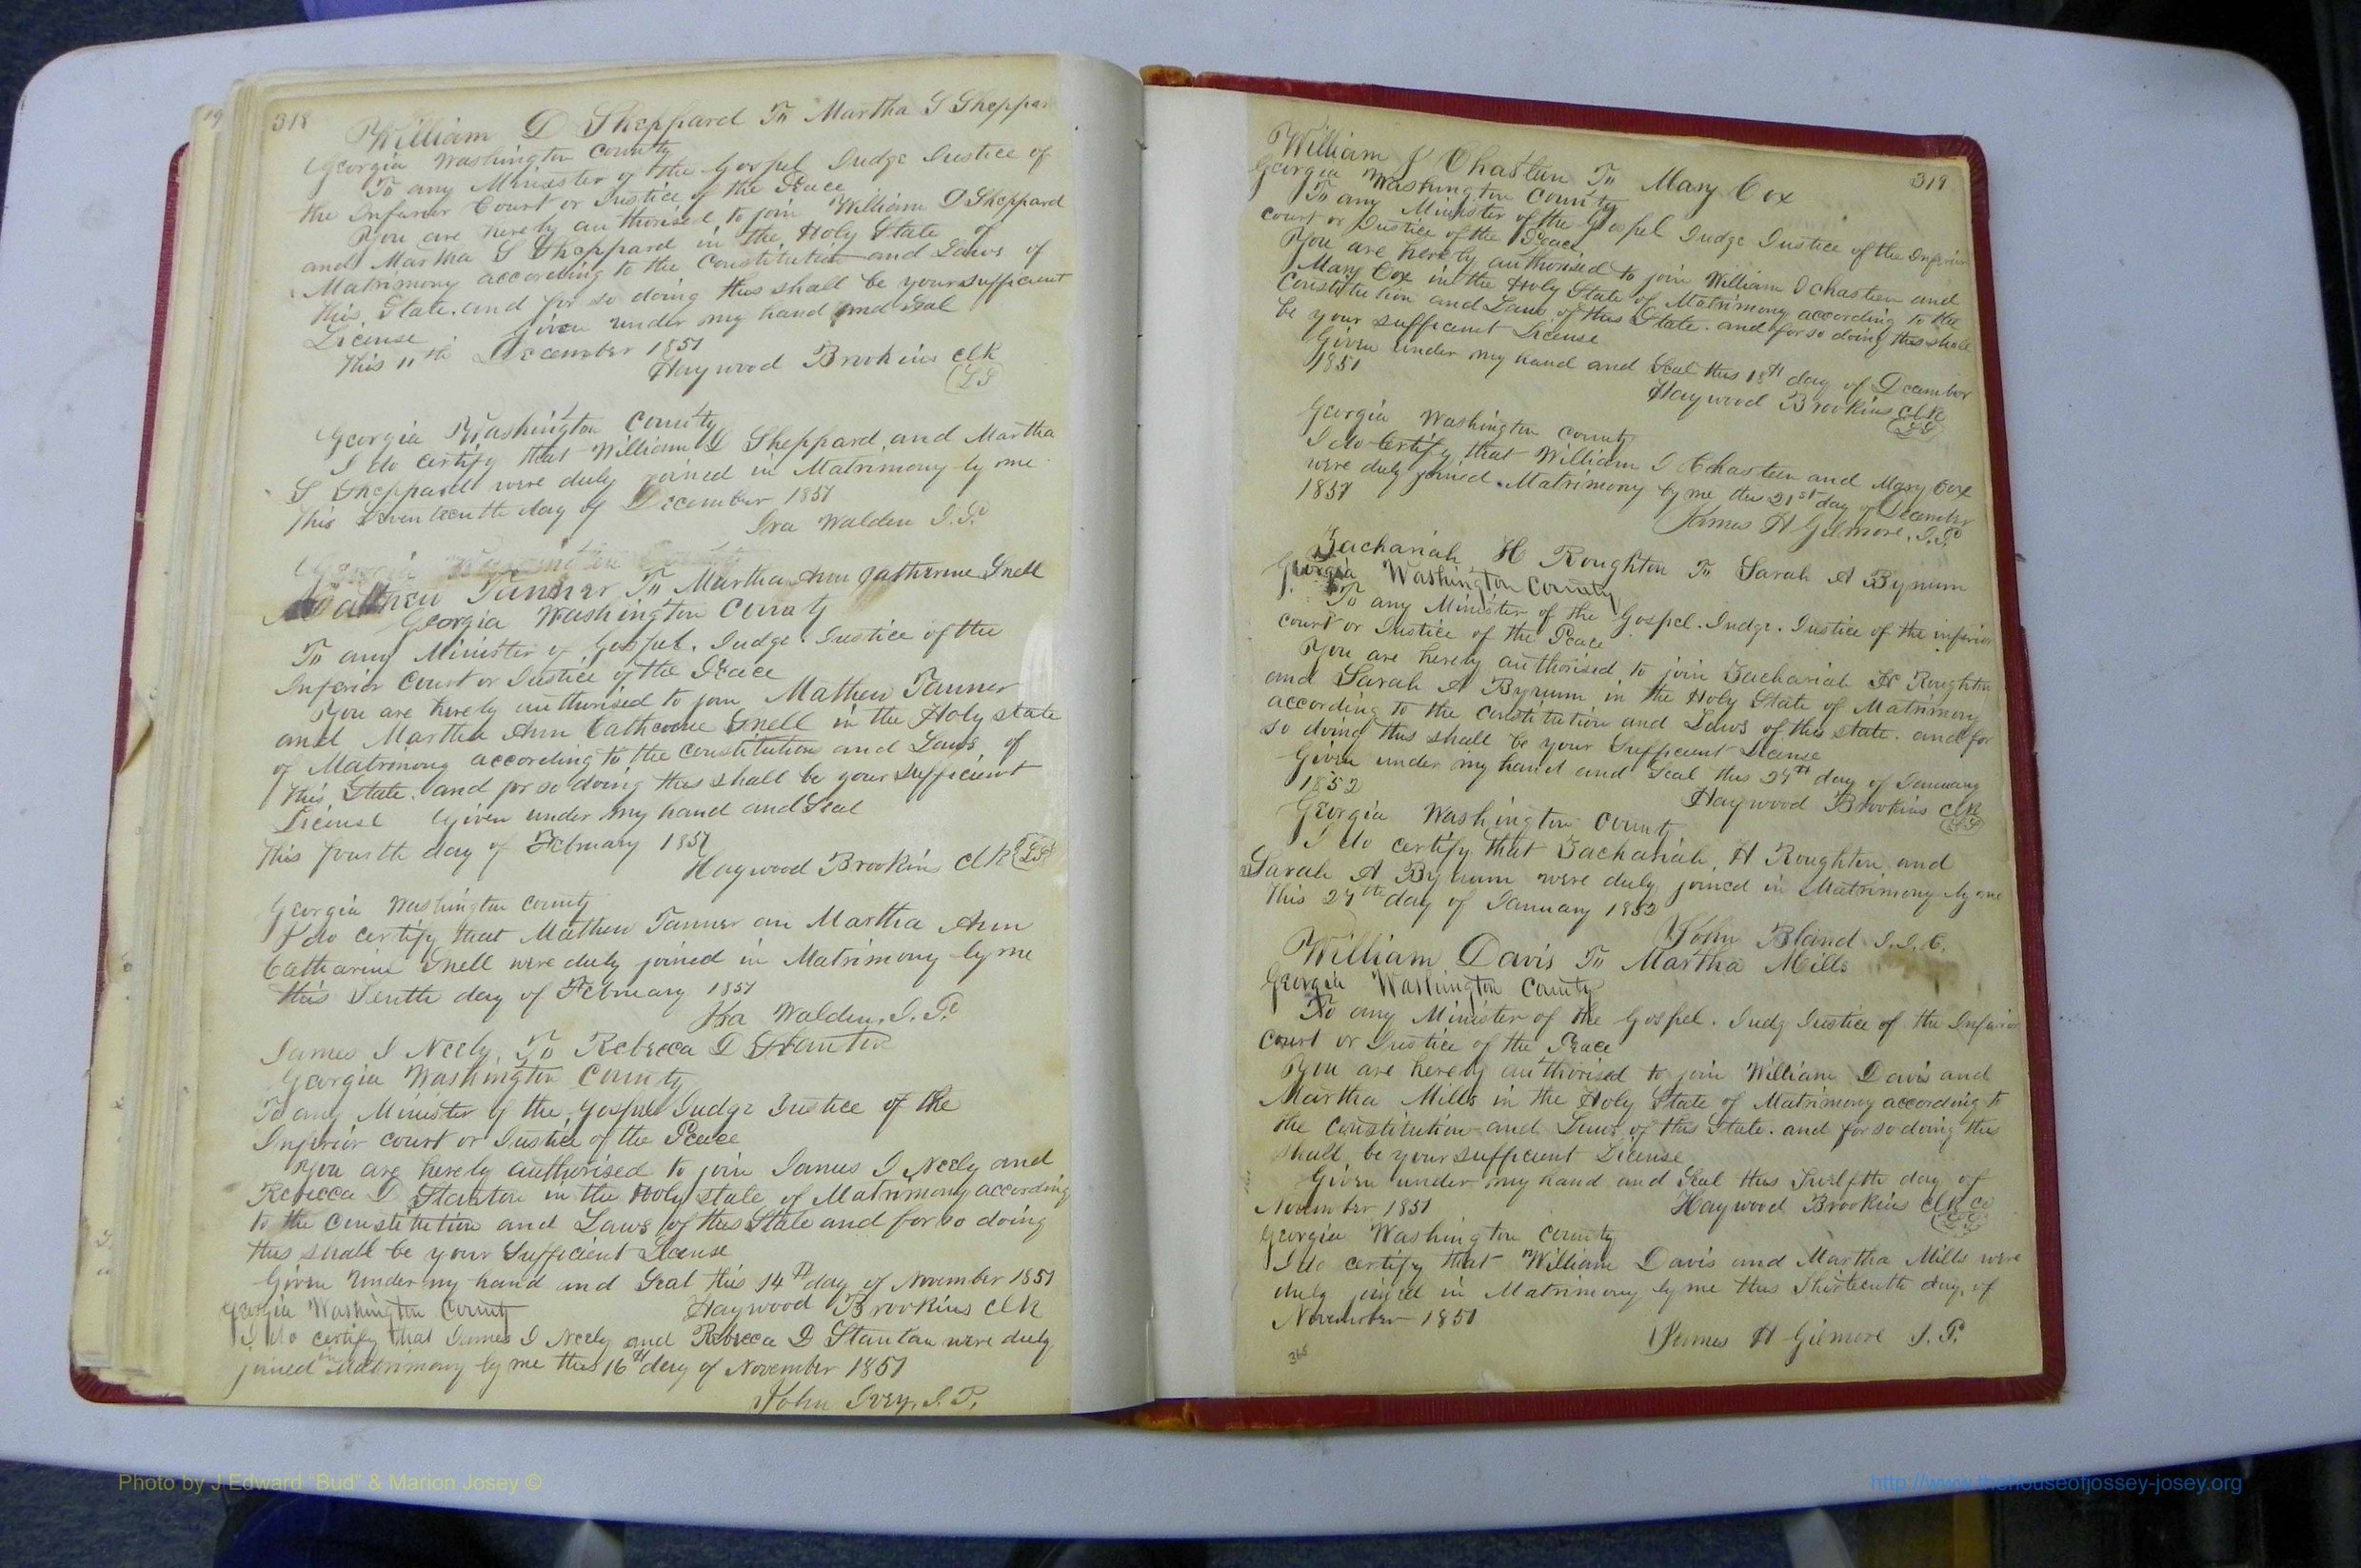 318
William D Sheppard To Martha S Sheppar
Georgia Washington County
To any Minister of the Gospel Judge Justice of
the Inferior Court or Justice of the Peace
You are hereby authorised to join William D Sheppard
and Martha S Sheppard in the Holy State of
Matrimony according to the Constitution and Laws of
this State. and for so doing this shall be your sufficient
License Given under my hand and Seal
This 11th December 1851
Haywood Brookins Clk
LS
Georgia Washington County
I do certify that William D Sheppard and Martha
S Sheppard were duly joined in Matrimony by me
This Seventeenth day of December 1851
Ira Walden J.P.
Georgia Washington County
Mathew Tanner To Martha Ann Catherine Snell
Georgia Washington County
To any Minister of Gospel. Judge. Justice of the
Inferior Court or Justice of the Peace
You are hereby authorised to join Mathew Tanner
and Martha Ann Catherine Snell in the Holy state
of Matrimony according to the constitution and Laws of
this State. and for so doing this shall be your sufficient
License Given under my hand and Seal
This fourth day of February 1851
Haywood Brookins Clk LS
Georgia Washington County
I do certify that Mathew Tanner an Martha Ann
Catharine Snell were duly joined in Matrimony by me
this Tenth day of February 1851
Ira Walden. J.P.
James J Neely, To Rebecca D Stanton
Georgia Washington County
To any Minister of the Gospel Judge Justice of the
Inferior court or Justice of the Peace
You are hereby authorised to join James J Neely and
Rebecca D Stanton in the Holy state of Matrimony according
to the constitution and Laws of this State and for so doing
this shall be your Sufficient License
Given under my hand and Seal this 14th day of November 1851
Georgia Washington County Haywood Brookins Clk
I do certify that James J Neely and Rebecca D Stanton were duly
joined in Matrimony by me this 16th day of November 1851
John Ivey, J.P.
319
William J Chasteen To Mary Cox
Georgia Washington County
To any Minister of the Gospel Judge Justice of the Inferior
court or Justice of the Peace
You are hereby authorised to join William J Chasteen and
Mary Cox in the Holy State of Matrimony according to the
Constitution and Laws of this State. and for so doing this shall
be your sufficient License
Given under my hand and Seal this 18th day of December
1851
Haywood Brookins Clk
LS
Georgia Washington County
I do Certify that William J Chasteen and Mary Cox
were duly joined Matrimony by me this 21st day of December
1851
James H Gilmore, J.P.
Zachariah H Roughton To Sarah A Bynum
Georgia Washington County
To any Minister of the Gospel. Judge. Justice of the inferior
court or Justice of the Peace
You are hereby authorised to join Zachariah H Roughton
and Sarah A Bynum in the Holy State of Matrimony
according to the constitution and Laws of this state. and for
so doing this shall be your Sufficient License
Given under my hand and Seal this 27th day of January
1852
Haywood Brookins Clk
LS
Georgia Washington County
I do certify that Zachariah H Roughton and
Sarah A Bynum were duly joined in Matrimony by me
This 27th day of January 1852
John Bland J.I.C.
William Davis To Martha Mills
Georgia Washington County
To any Minister of the Gospel. Judg Justice of the Inferior
court or Justice of the Peace
You are hereby authorised to join William Davis and
Martha Mills in the Holy State of Matrimony according to
the Constitution and Laws of this State. and for so doing this
shall be your sufficient License
Given under my hand and Seal this Twelfth day of
November 1851 Haywood Brookins Clk Co
LS
Georgia Washington County
I do certify that William Davis and Martha Mills were
duly joined in Matrimony by me this Thirteenth day of
November 1851
James H Gilmore J.P.
365
Photo by J Edward "Bud" & Marion Josey ©
http://www.thehouseofjossey-josey.org